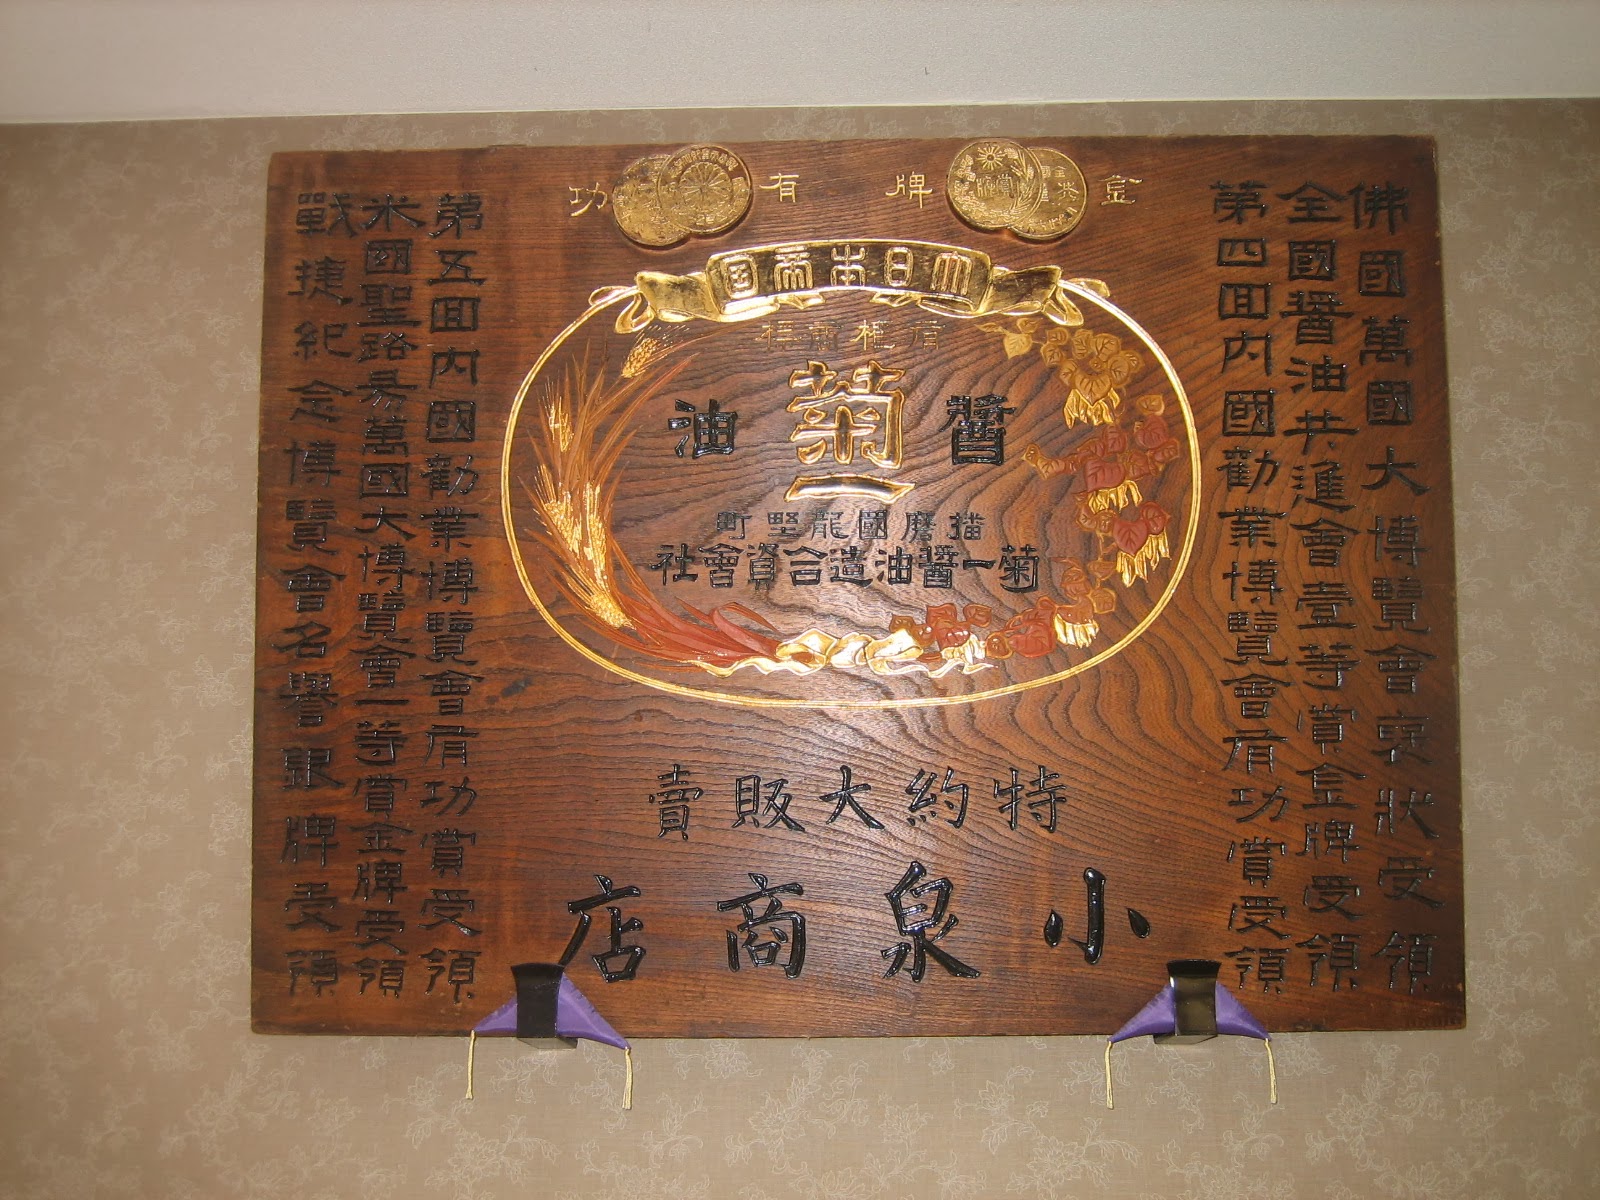 金牌 有功
佛國萬國大博覽會褒狀受領
全國醤油共進會壹等賞金牌受領
第四回内國勸業博覽會有功賞受領
大日本帝国
醤油
菊一
播磨國龍野町
菊一醤油造合資會社
特約大販賣
小泉商店
第五回内國勸業博覽會有功賞受領
米國聖路易萬國大博覽會一等賞金牌受領
戰捷紀念博覽會名譽銀牌受領